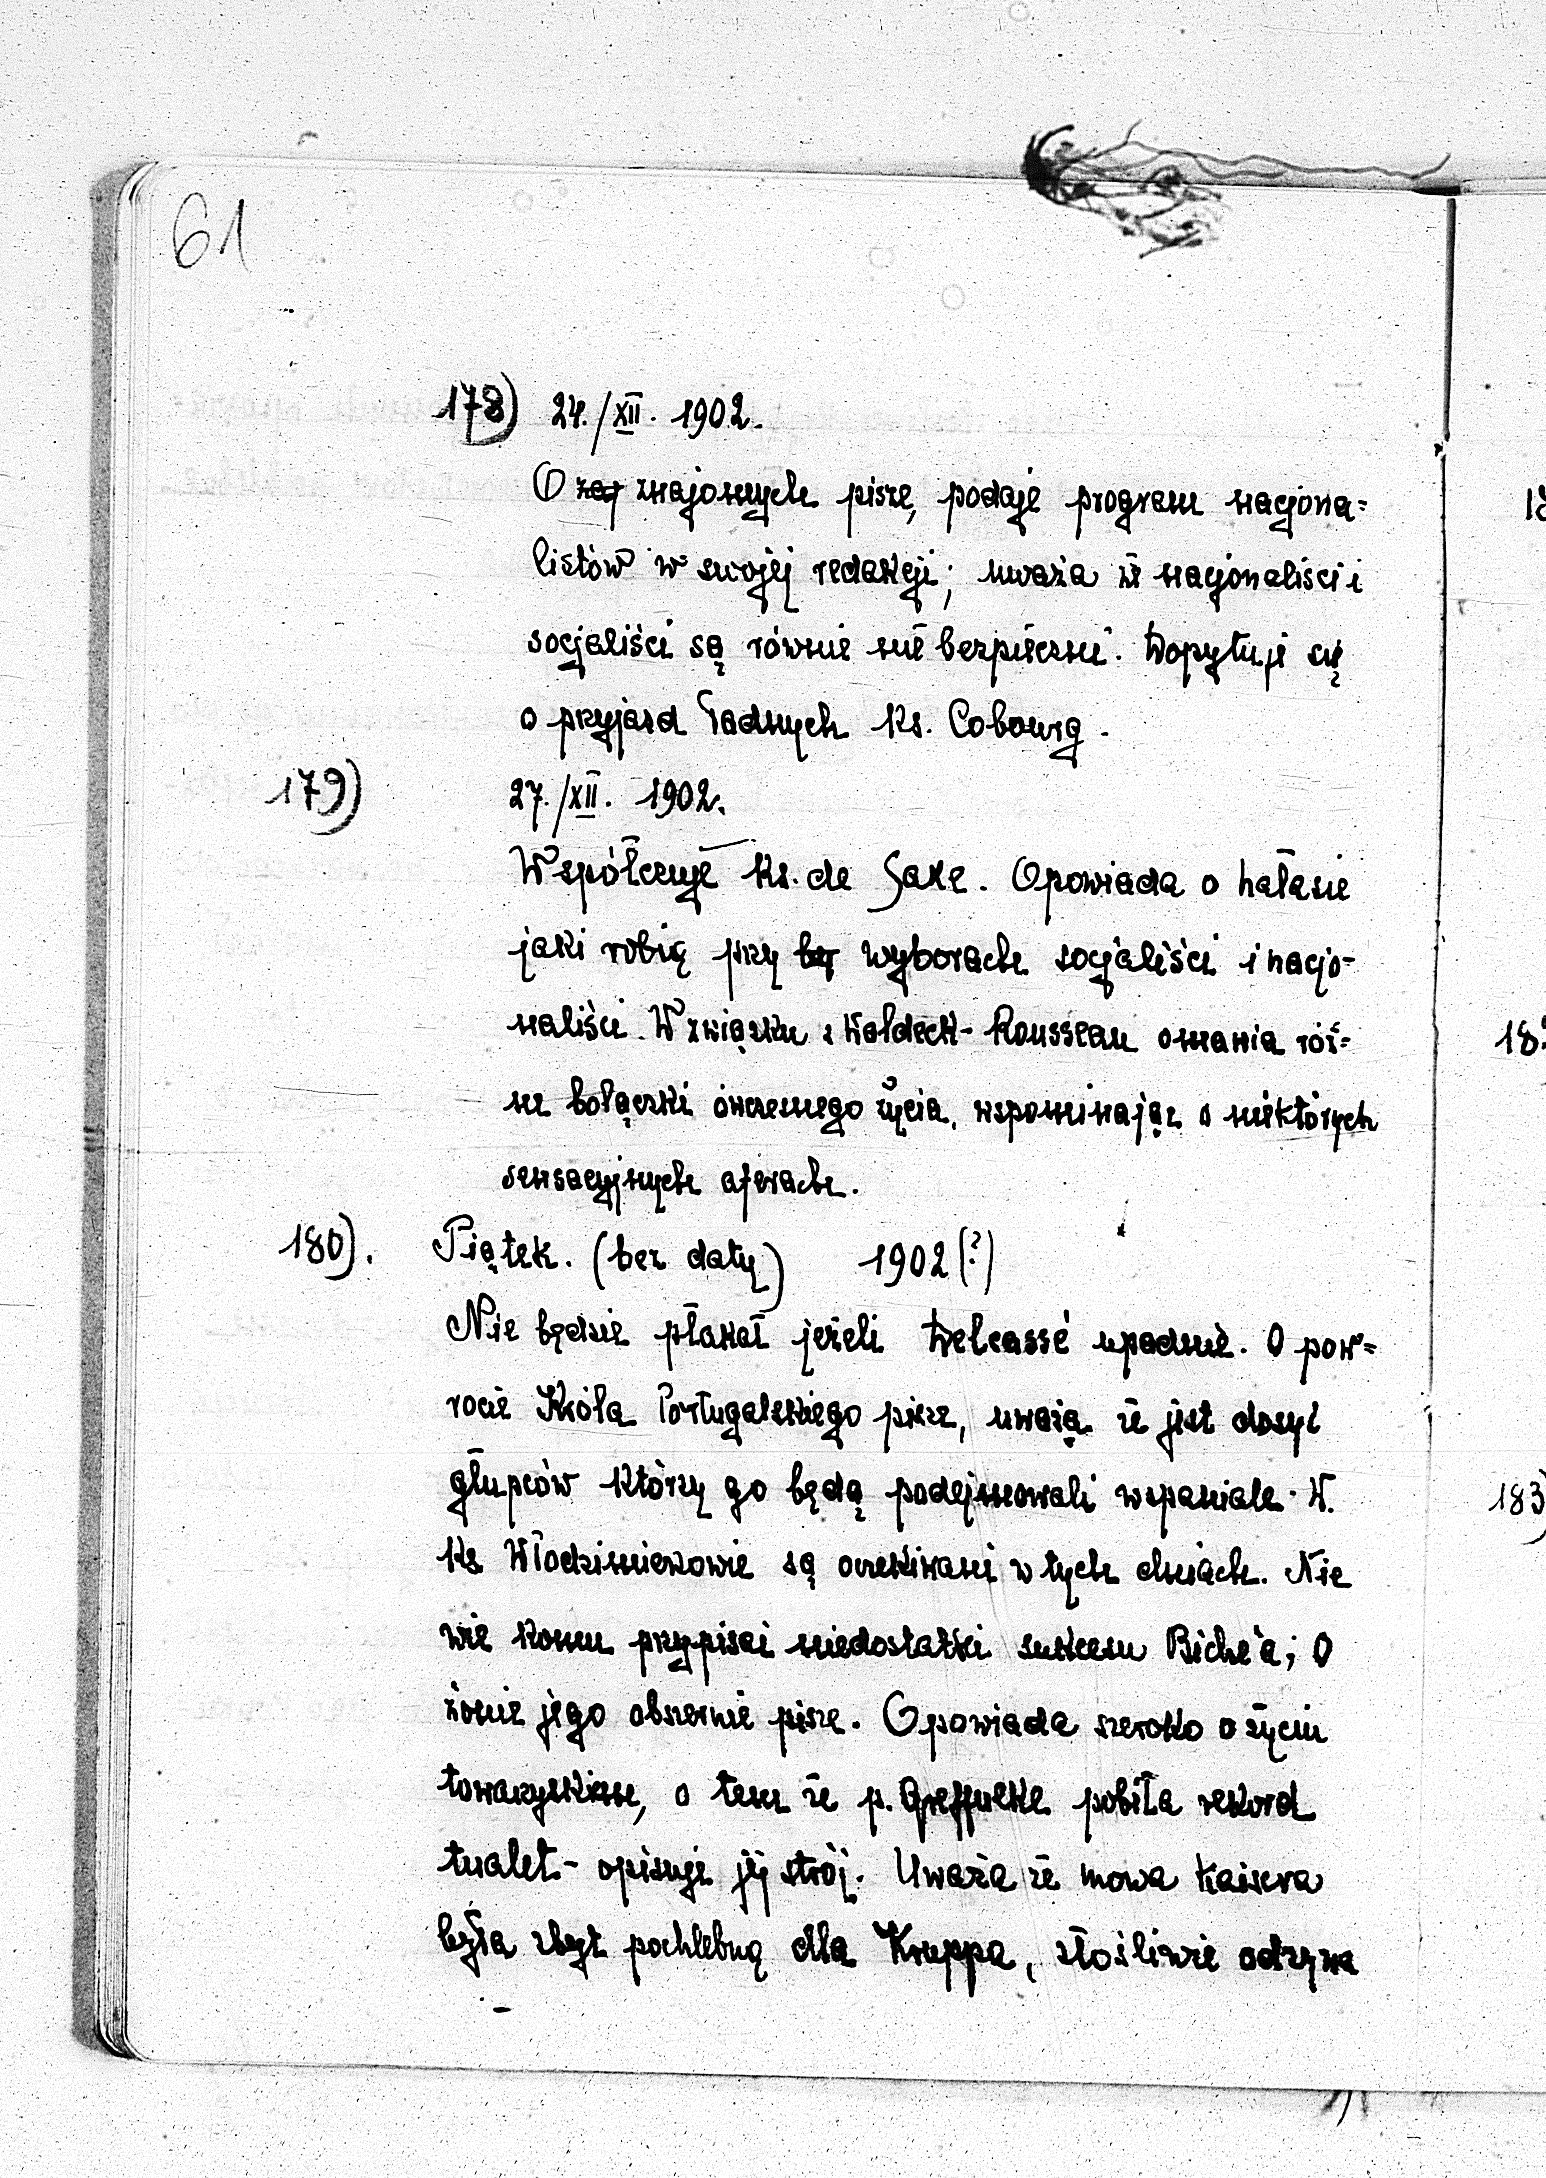 61
178) 24./XII. 1902.
O zaj znajomych pisze, podaje program nacjona=
listów w swojej redakcji; uważa że nacjonaliści i
socjaliści są równie nie bezpieczni. Dopytuje się
o przyjazd ładnych ks. Cobourg.
179) 27./XII. 1902.
Współczuje ks. de Saxe. Opowiada o hałasie
jaki robią przy wyborach socjaliści i nacjo-
naliści. W związku z Waldeck-Rousseau omawia róż=
ne bolączki ówczesnego życia, wspominając o niektórych
sensacyjnych aferach.
180). Piątek. (bez daty) 1902(?)
Nie będzie płakał jeżeli Delcassé upadnie. O pow=
rocie Króla Portugalskiego pisze, uważa że jest dosyć
głupców którzy go będą podejmowali wspaniale. W.
Ks Włodzimierzowie są oczekiwani w tych dniach. Nie
wie komu przypisać niedostatki sukcesu Biche'a; O
żonie jego obszernie pisze. Opowiada szeroko o życiu
towarzyskiem, o tem że p. Greffulke pobiła rekord
tualet - opisuje jej strój. Uważa że mowa Kaisera
była zbyt pochlebną dla Kruppa, złośliwie odzywa
18
183)